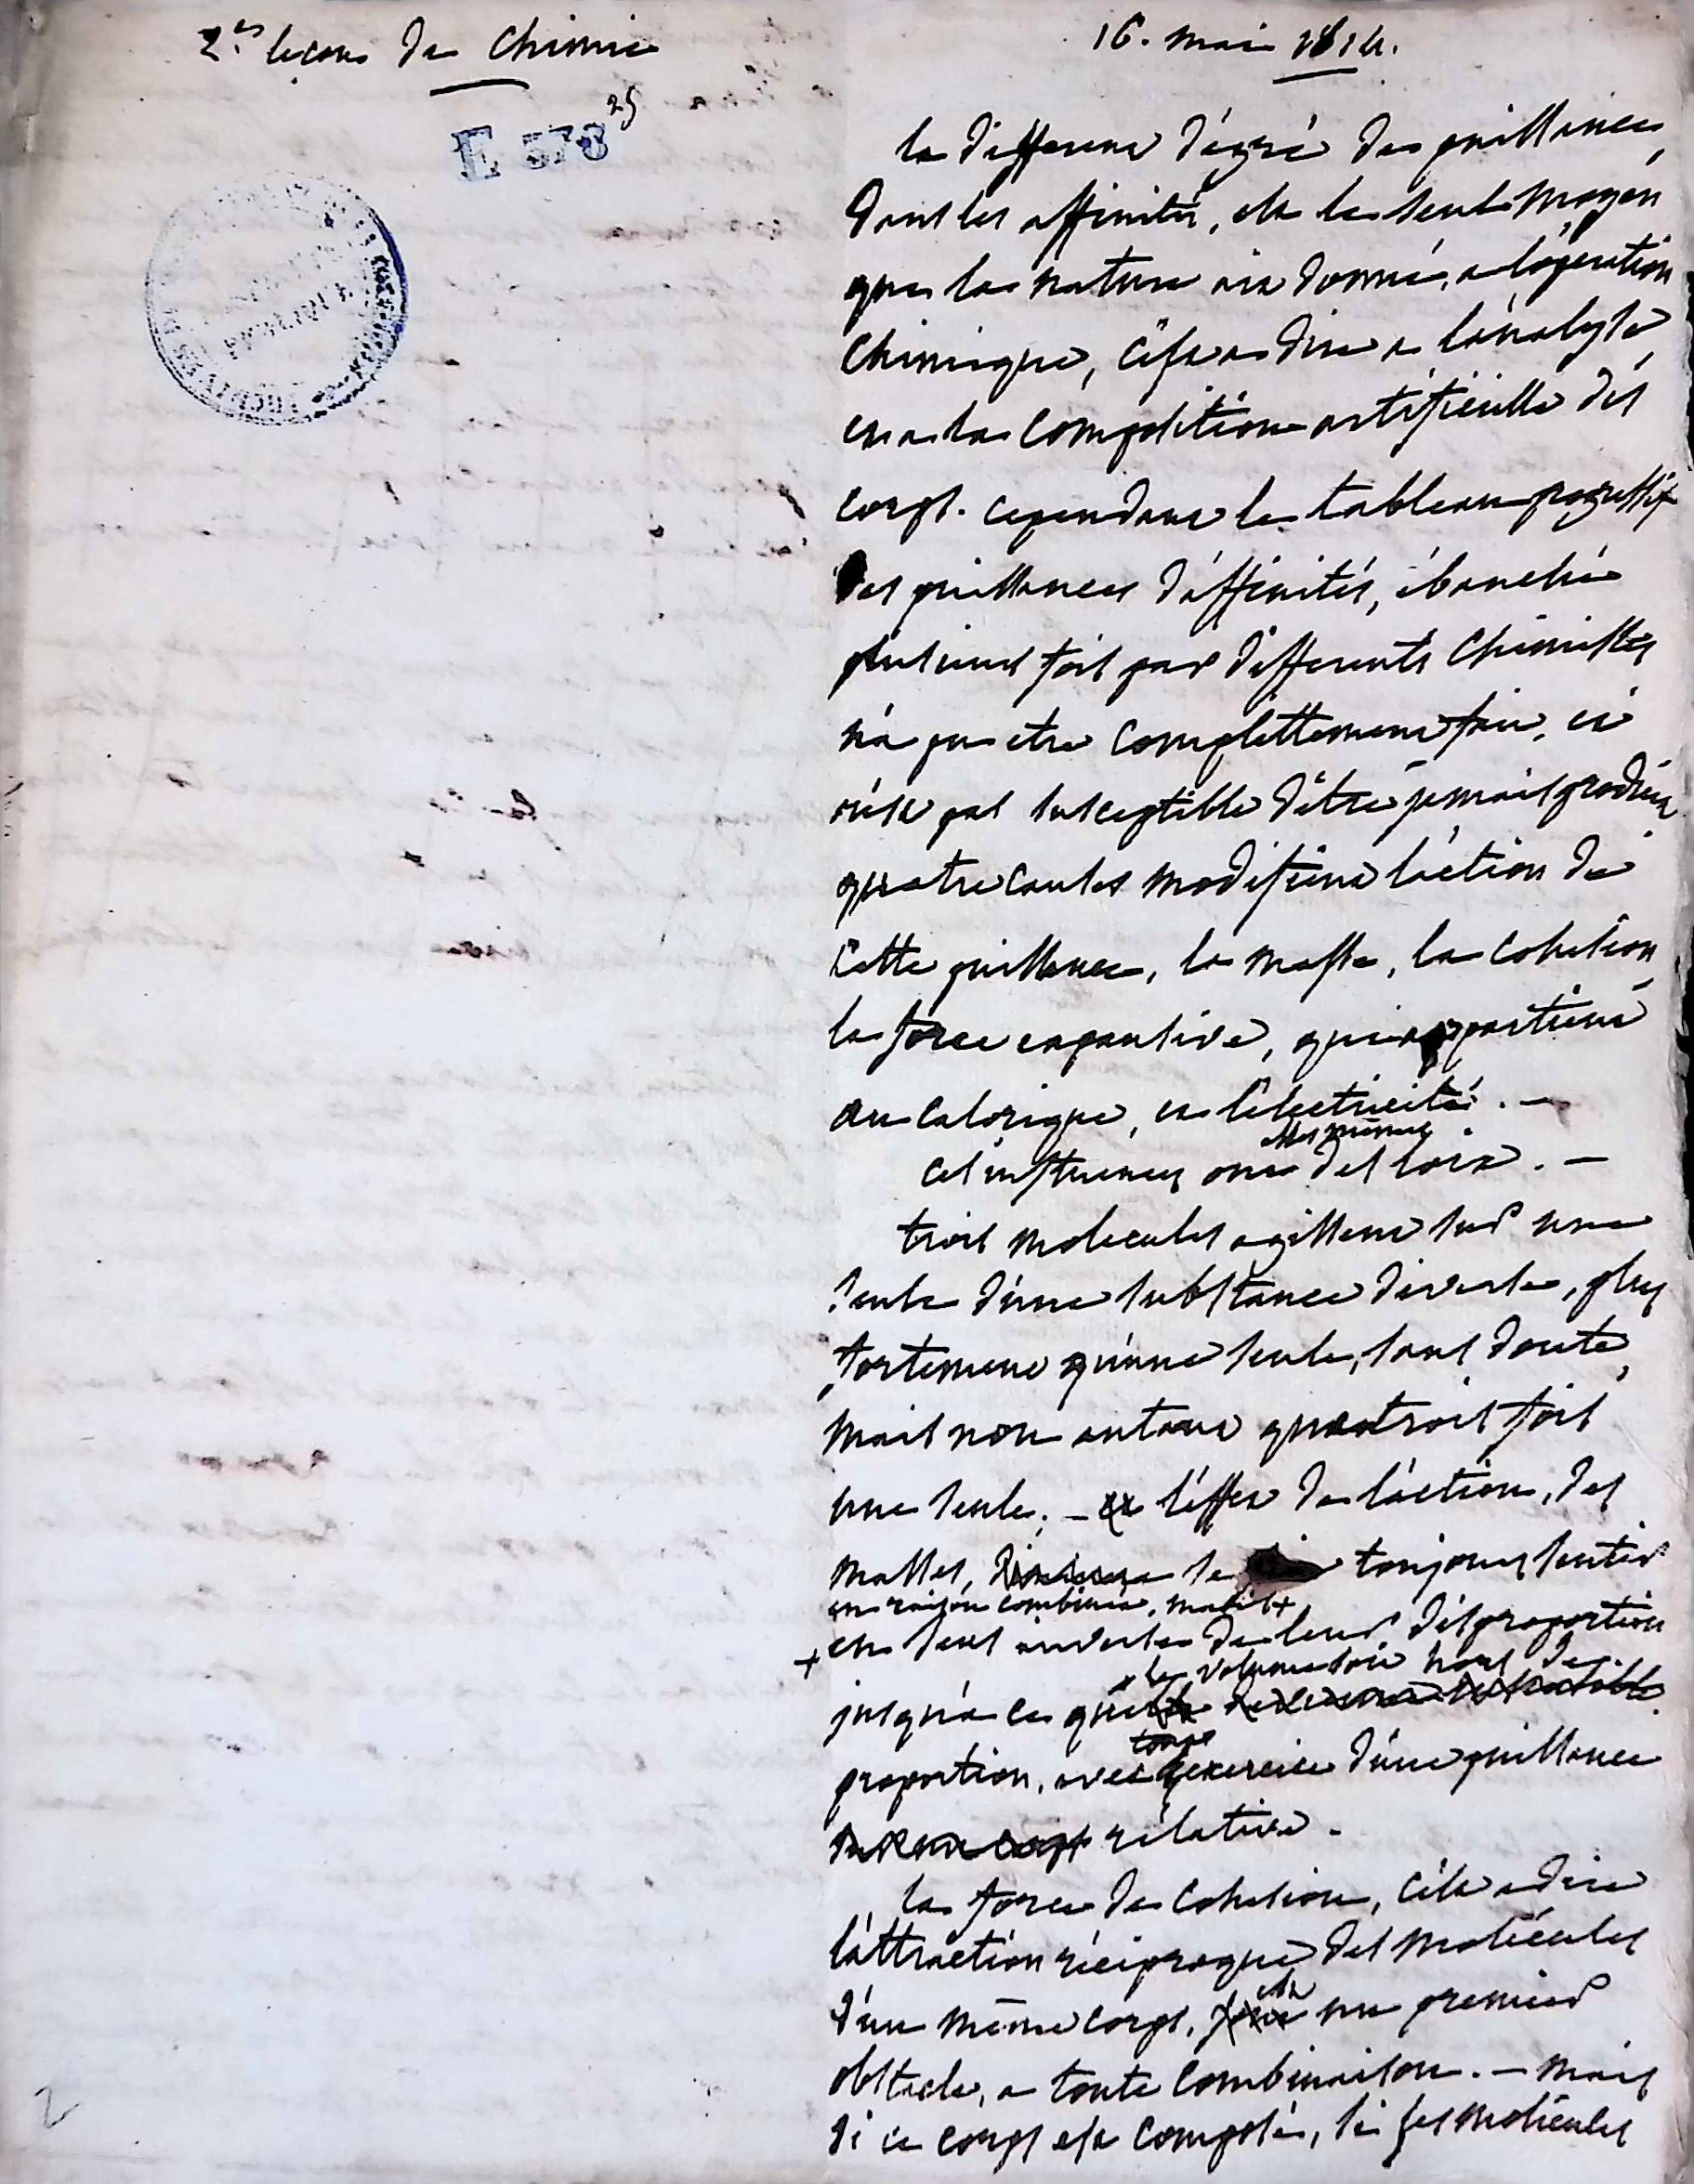 2.es leçons de Chimie
16. mai 1814.
E 578
25
la different dégré des puissances,
dans les affinités, est le seul moyen
que la nature ait donné, a l'opération
Chimique, c'est a dire a l'analyse,
et a la composition artificielle des
corps. cependant le tableau progressif
des puissances d'affinités, ébauchée
plusieurs fois par differents Chimistes
n'a pu etre complettement fait, et
n'est pas susceptible d'être jamais produit
quatre causes modifient l'action de
cette puissance, la masse, la cohésion,
la force expansive, qui appartient
au calorique, et l'électricité. —
elles mêmes
ces influences ont des loix. —
trois molecules agissent sur une
seule d'une substance diverse, plus
fortement qu'une seule, sans doute,
mais non autant que trois fois
une seule. — l'effet de l'action, des
masses, se toujours sentir
en raison combinée, mais +
+ en sens inverse de leur disproportion
le volume soit hors de
jusqu'a ce que
proportion, avec l'exercice d'une puissance
relative.
la force de cohésion, c'est a dire
l'attraction réciproque des molécules
d'un même corps, est un premier
obstacle, a toute combinaison. — mais
si ce corps est composé, si ses molécules
2